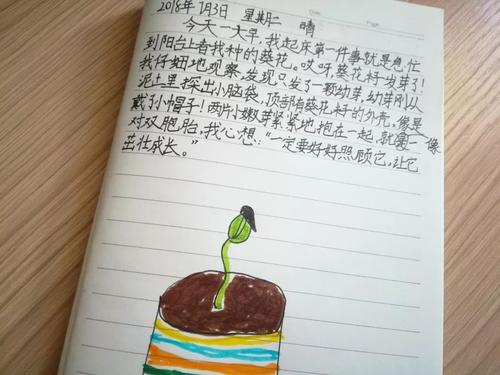 2018年1月3日 星期二 晴
今天一大早，我起床第一件事就是急忙
到阳台上看我种的葵花。哎呀，葵花籽发芽了！
我仔细地观察，发现只发了一颗幼芽，幼芽刚从
泥土里探出小脑袋，顶部有葵花籽的外壳，像是
戴了小帽子！两片小嫩芽紧紧地抱在一起，就像一
对双胞胎，我心想：“一定要好好照顾它，让它
茁壮成长。”